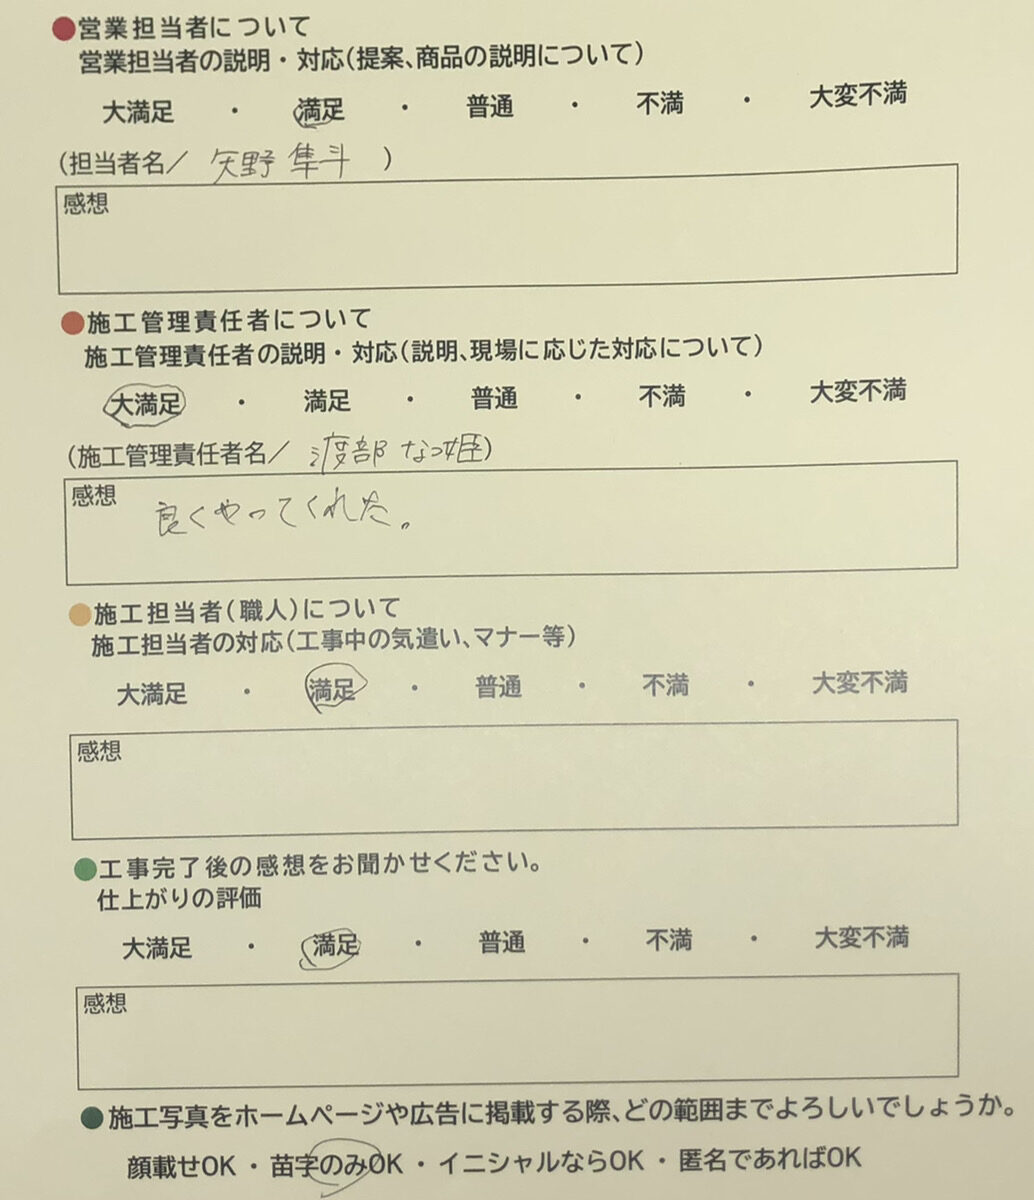 ●営業担当者について
営業担当者の説明・対応(提案、商品の説明について)
大満足 ・ 満足 ・ 普通 ・ 不満 ・ 大変不満
(担当者名/ 矢野 隼斗 )
感想
●施工管理責任者について
施工管理責任者の説明・対応(説明、現場に応じた対応について)
大満足 ・ 満足 ・ 普通 ・ 不満 ・ 大変不満
(施工管理責任者名/ 渡部 なつ姫)
感想 良くやってくれた。
●施工担当者(職人)について
施工担当者の対応(工事中の気遣い、マナー等)
大満足 ・ 満足 ・ 普通 ・ 不満 ・ 大変不満
感想
●工事完了後の感想をお聞かせください。
仕上がりの評価
大満足 ・ 満足 ・ 普通 ・ 不満 ・ 大変不満
感想
●施工写真をホームページや広告に掲載する際、どの範囲までよろしいでしょうか。
顔載せOK ・ 苗字のみOK ・ イニシャルならOK ・ 匿名であればOK